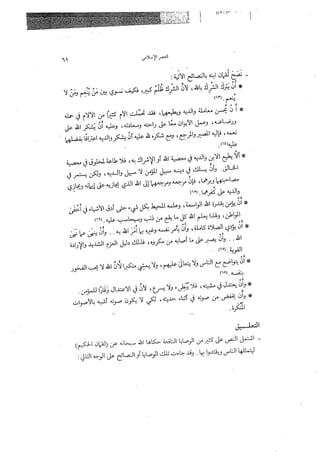 العصر الإسلامي
٦٩
- نصح لقمان ابنه بالنصائح الآتية:
* أن يترك الشرك بالله، لأن الشرك ظلم كبير، فكيف نسوي بين من ينعم ومن لا
ينعم.
* أن يحسن معاملة والديه ويطيعهما، فقد تحملت الأم كثيرًا من الآلام في حمله
ورضاعه، وعمل الأبوان معًا على راحته وسعادته، وعليه أن يشكر الله على
نعمه، فإليه المصير والمرجع، ومع شكره لله عليه أن يشكر والديه اعترافًا بفضلهما
عليه
* ألا يطيع الابن والديه في معصية الله أو الإشراك به، فلا طاعة لمخلوق في معصية
الخالق. وأن يسلك في دينه سبيل المؤمن لا سبيل والديه، ولكن يستمر في
مصاحبتهما وبرهما، فإن مرجعه ومرجعهما إلى الله الذي يجازيه على إيمانه ويجازي
والديه على كفرهما.
* أن يؤمن بقدرة الله الواسعة، وعلمه المحيط بكل شيء حتى أدق الأشياء في أخفى
المواطن، وهكذا يعلم الله كل ما يقع من ذنب ويحاسب عليه.
* أن يؤدي الصلاة كاملة، وأن يأمر نفسه وغيره بما أمر الله به.. وأن ينهى عما نهى
الله.. وأن يصبر على ما أصابه من مكروه، فذلك دليل العزم الشديد والإرادة
القوية.
* أن يتواضع مع الناس ولا يتعالى عليهم، ولا يمشي متكبرًا لأن الله لا يحب الفخور
بنفسه.
* وأن يعتدل في مشيته، فلا يبطئ ولا يسرع، لأن في الاعتدال وقارًا للمؤمن.
* وأن يخفض من صوته في أثناء حديثه، لكي لا يكون صوته أشبه بالأصوات
المنكرة.
التعليــق
- اشتمل النص على كثير من الوصايا النافعة حكاها الله سبحانه عن (لقمان الحكيم)
ليتمثلها الناس ويقتدوا بها. وقد جاءت تلك الوصايا أو النصائح على الوجه التالي: